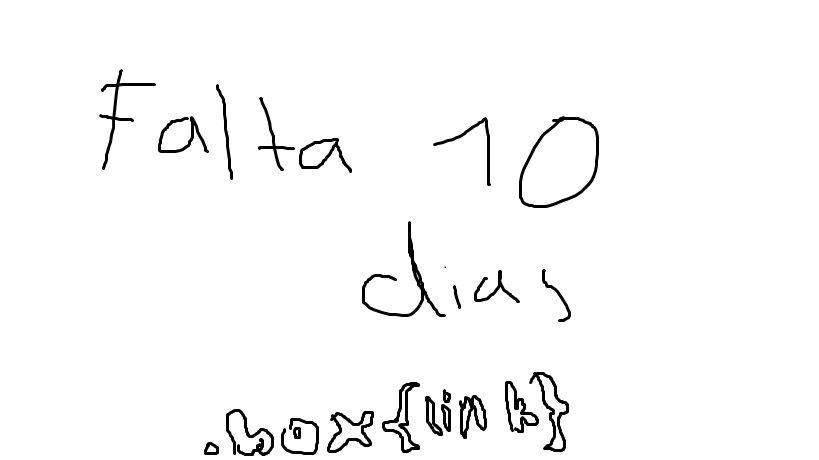 Falta 10
dias
.box{link}